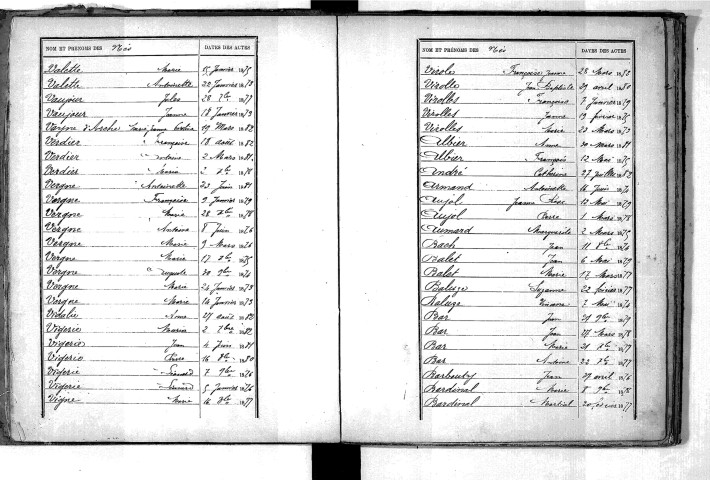 NOM ET PRÉNOMS DES Nés DATES DES ACTES
Valette Marie 15 Janvier 1875
Valette Antoinette 22 Janvier 1873
Vaujour Jules 28 1877
Vaujour Jeanne 18 Janvier 1873
Vayne d'Arche 19 Mars 1882
Verdier Françoise 18 août 1882
Verdier Antoine 2 Mars 1881
Verdier Maria 2 1878
Vergne Antoinette 23 Juin 1881
Vergne Françoise 9 Janvier 1879
Vergne Marie 28 1878
Vergne Antoine 8 Juin 1876
Vergne Marie 9 Mars 1876
Vergne Marie 17 1875
Vergne Auguste 30 9bre 1874
Vergne Marie 24 Janvier 1873
Vergne Marie 14 Janvier 1873
Vidalie Anne 27 août 1882
Vigerie Maria 2 1882
Vigerie Jean 4 Juin 1881
Vigerie Pierre 16 8bre 1880
Vigerie Léonard 7 9bre 1876
Vigerie Léonard 5 Janvier 1876
Vigne Marie 16 1877
NOM ET PRÉNOMS DES Nés DATES DES ACTES
Virole Françoise Jeanne 28 Mars 1873
Virolle Jean Baptiste 29 avril 1880
Virolles François 7 Janvier 1879
Virolles Jeanne 19 février 1875
Virolles Marie 23 Mars 1873
Albier Anne 30 Mars 1881
Albier François 12 Mai 1875
André Catherine 27 juillet 1882
Armand Antoinette 16 Juin 1876
Aujol Jeanne 12 Mai 1879
Aujol Pierre 1 Mars 1878
Aumard Marguerite 2 Mars 1875
Bach Jean 11 8bre 1876
Balet Jean 6 Mai 1879
Balet Marie 17 Mars 1877
Baluze Suzanne 22 février 1877
Baluze 7 Mai 1874
Bar Jean 21 9bre 1879
Bar Jean 27 Mars 1878
Bar Marie 21 1877
Bar Antoine 22 1877
Barbouty Jean 29 avril 1876
Bardinal Marie 8 9bre 1878
Bardinal Martial 20 février 1877